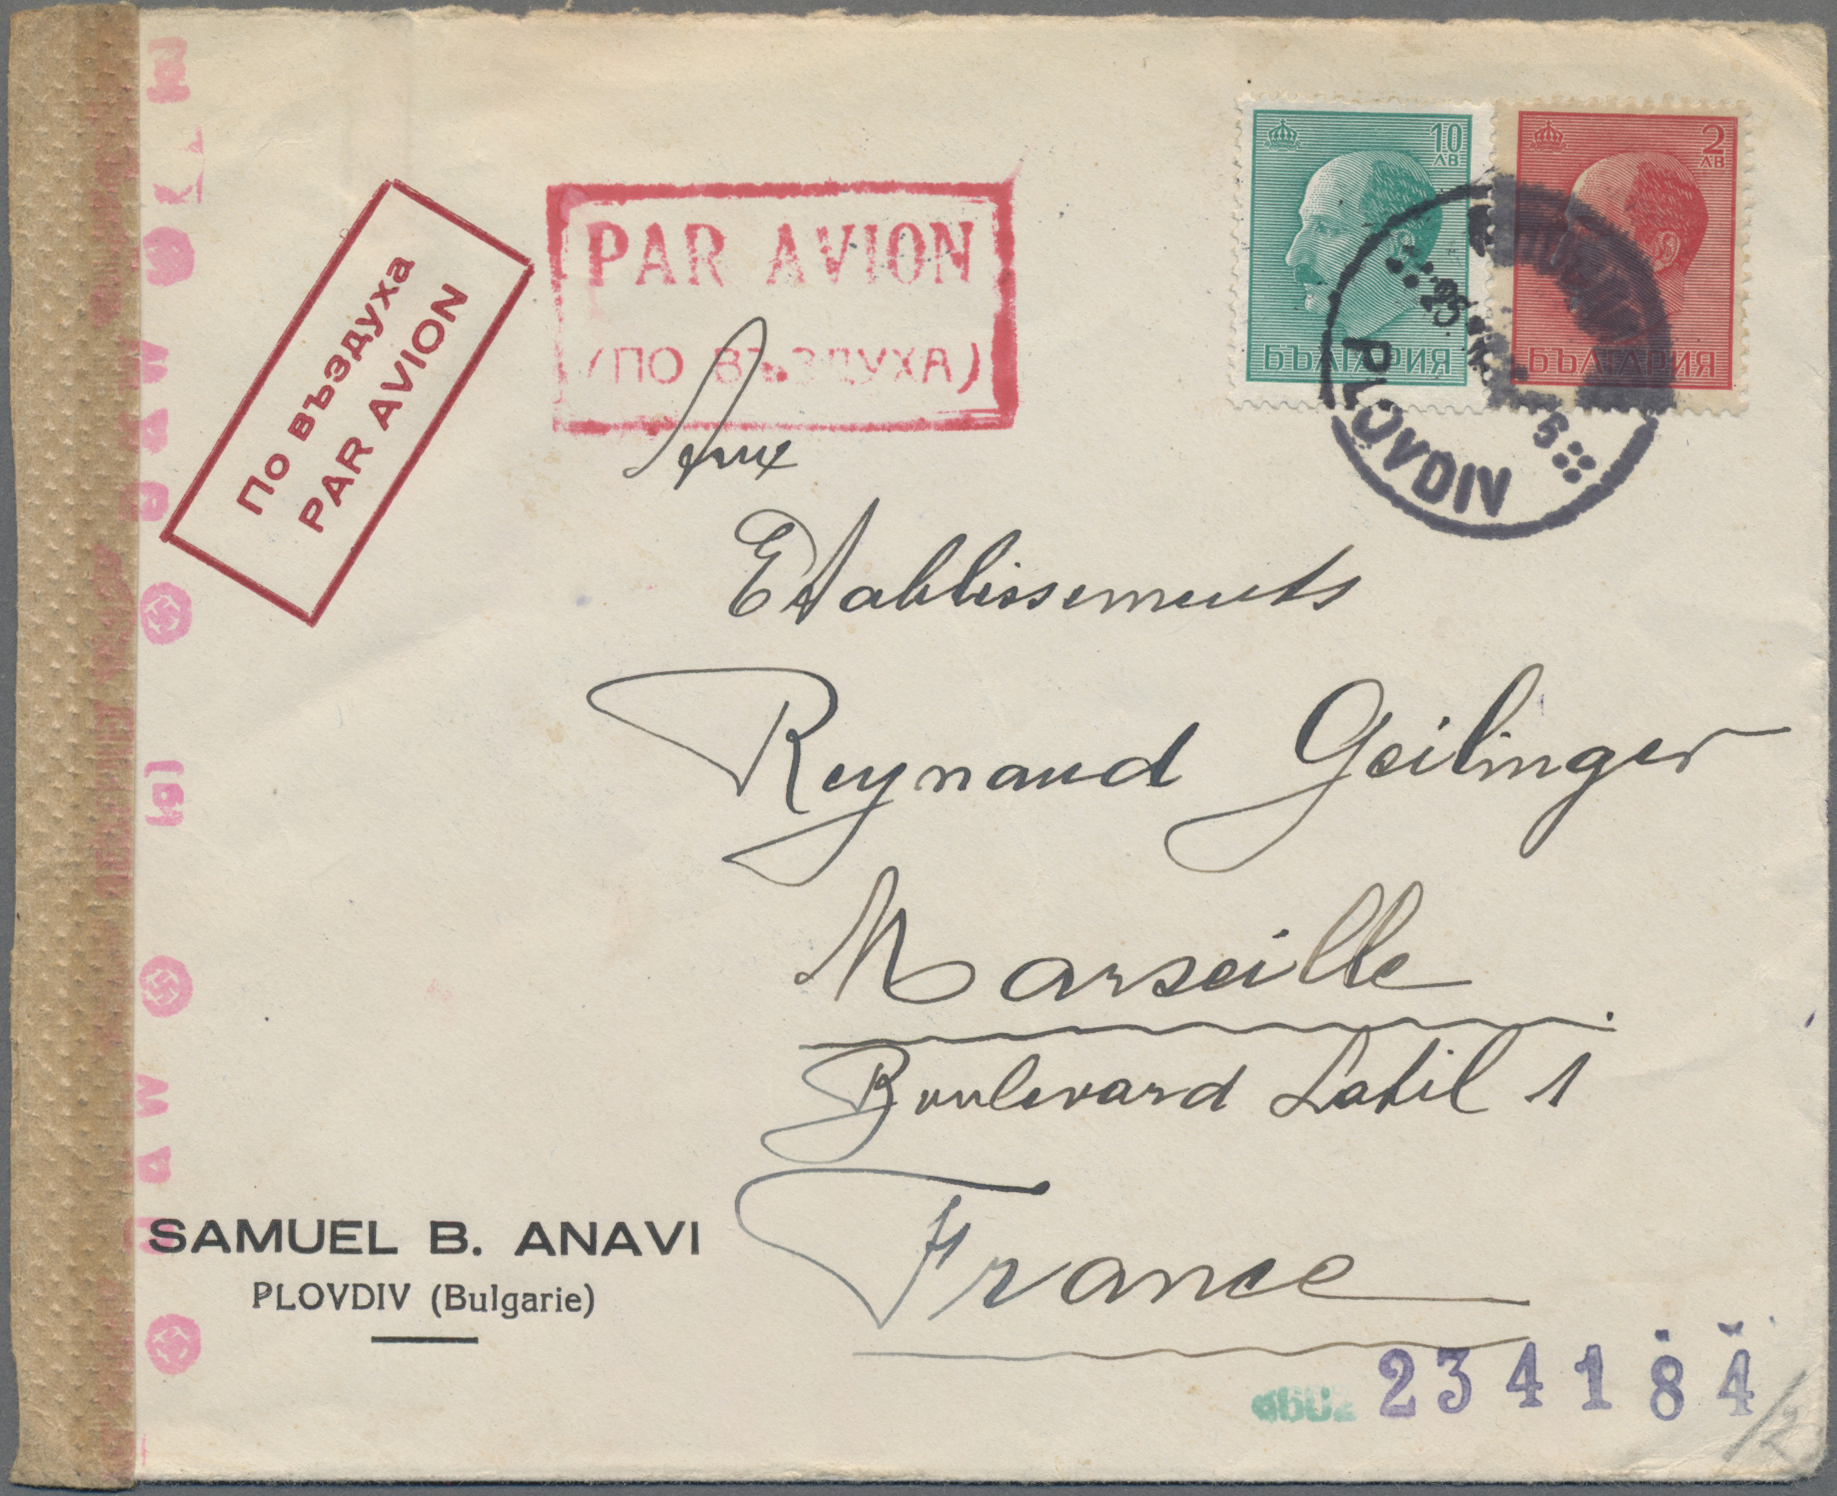 По въздуха
PAR AVION
PAR AVION
(ПО ВЪЗДУХА)
10
ЛВ
БЪЛГАРИЯ
2
ЛВ
БЪЛГАРИЯ
PLOVDIV
Aux
Etablissements
Reynaud Geilinger
Marseille
Boulevard Latil 1
France
SAMUEL B. ANAVI
PLOVDIV (Bulgarie)
234184